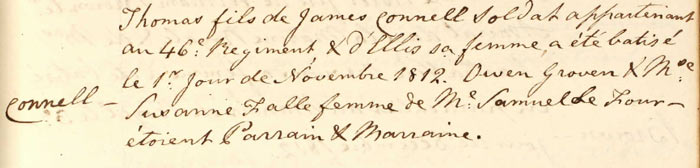 Thomas fils de James Connell Soldat appartenant
au 46.e Regiment & d'Ellis sa femme, a été batisé
le 1.r Jour de Novembre 1812. Owen Groven & M.de
Connell – Susanne Falle femme de M.r Samuel Le Four-
étoient Parrain & Marraine.